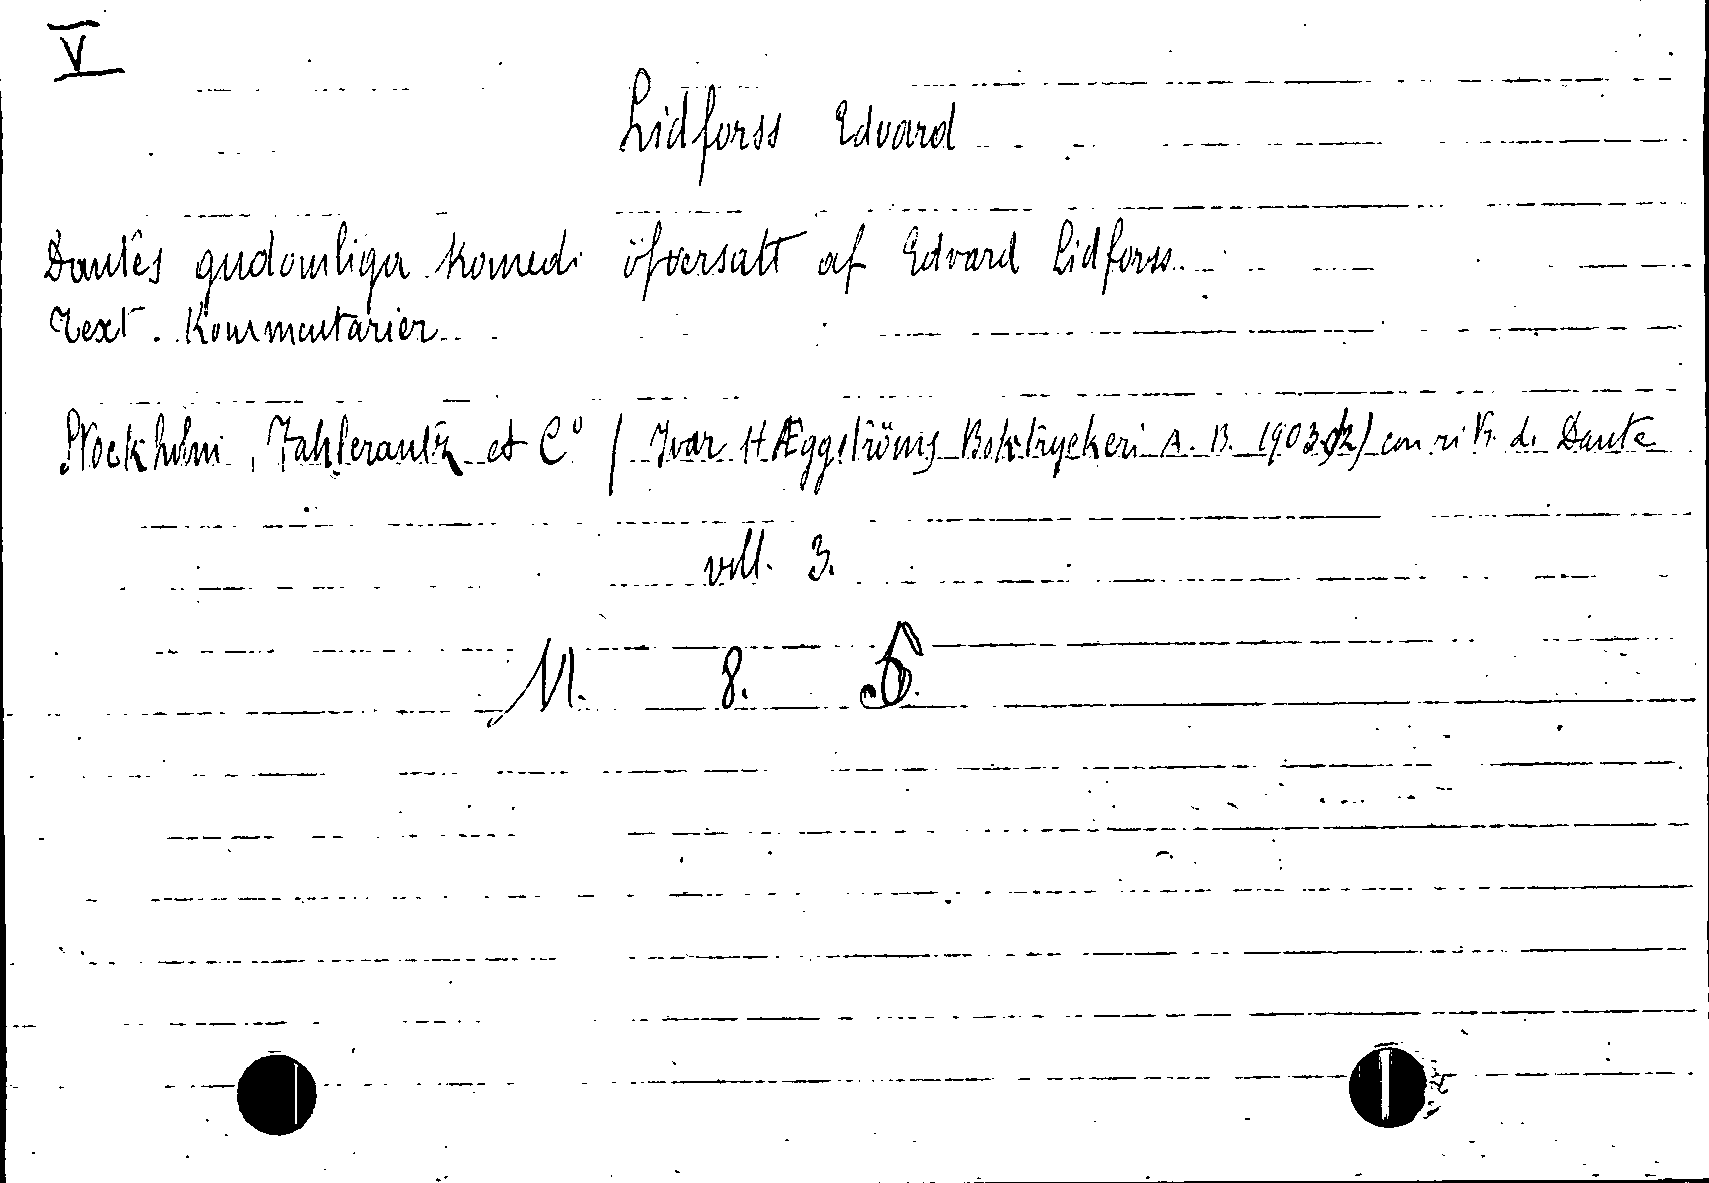 V
Lidforss Edvard
Dantês gudomliga komedi öfversatt af Edvard Lidforss
Text. Kommentarier
Stockholm, Fahlcrantz et C° (Ivar Hæggströms Boktryckeri A. B. 1903 con rit. di Dante
voll. 3.
M. 8.